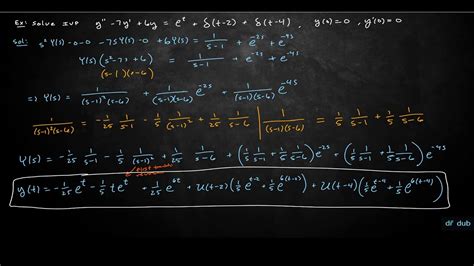 Ex: Solve IVP y'' - 7y' + 6y = e^t + δ(t-2) + δ(t-4), y(0)=0, y'(0)=0
Sol: s²Y(s) - 0 - 0 - 7sY(s) - 0 + 6Y(s) = 1/(s-1) + e^{-2s} + e^{-4s}
Y(s)(s² - 7s + 6) = 1/(s-1) + e^{-2s} + e^{-4s}
(s-1)(s-6)
⇒ Y(s) = 1/((s-1)²(s-6)) + 1/((s-1)(s-6)) e^{-2s} + 1/((s-1)(s-6)) e^{-4s}
1/((s-1)²(s-6)) = -1/25 1/(s-1) - 1/5 1/(s-1)² + 1/25 1/(s-6) | 1/((s-1)(s-6)) = 1/5 1/(s-1) + 1/5 1/(s-6)
Y(s) = -1/25 1/(s-1) - 1/5 1/(s-1)² + 1/25 1/(s-6) + (1/5 1/(s-1) + 1/5 1/(s-6)) e^{-2s} + (1/5 1/(s-1) + 1/5 1/(s-6)) e^{-4s}
y(t) = -1/25 e^t - 1/5 t e^t + 1/25 e^{6t} + u(t-2)(1/5 e^{t-2} + 1/5 e^{6(t-2)}) + u(t-4)(1/5 e^{t-4} + 1/5 e^{6(t-4)})
dr dub